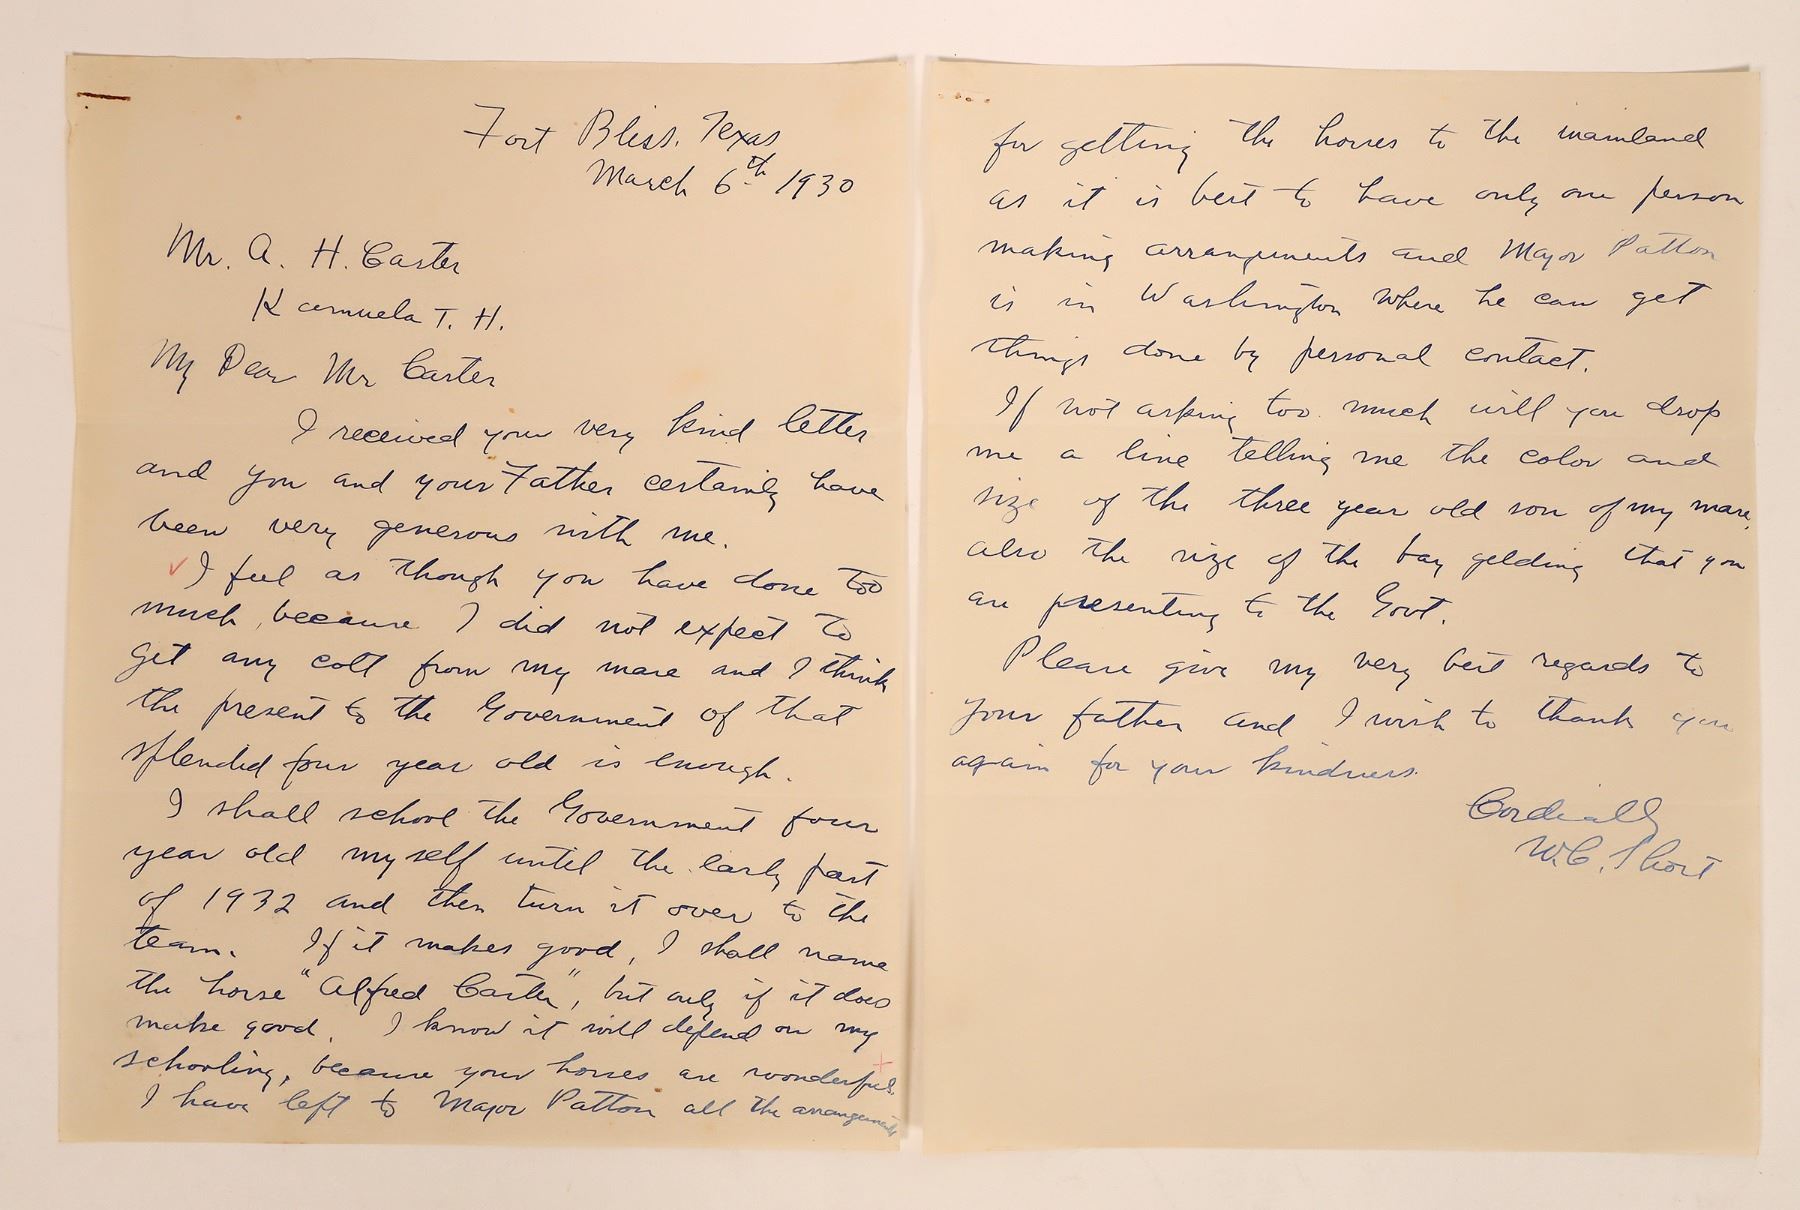 Fort Bliss, Texas
March 6th 1930
Mr. A. H. Carter
Kamuela T. H.
My Dear Mr Carter
I received your very kind letter
and you and your Father certainly have
been very generous with me.
I feel as though you have done too
much, because I did not expect to
get any colt from my mare and I think
the present to the Government of that
splended four year old is enough.
I shall school the Government four
year old myself until the early part
of 1932 and then turn it over to the
team. If it makes good, I shall name
the horse "Alfred Carter", but only if it does
make good. I know it will depend on my
schooling, because your horses are wonderful.
I have left to Major Patton all the arrangements
for getting the horses to the mainland
as it is best to have only one person
making arrangements and Major Patton
is in Washington where he can get
things done by personal contact.
If not asking too much will you drop
me a line telling me the color and
size of the three year old son of my mare,
also the size of the bay gelding that you
are presenting to the Govt.
Please give my very best regards to
your father and I wish to thank you
again for your kindness.
Cordially
W.C. Short